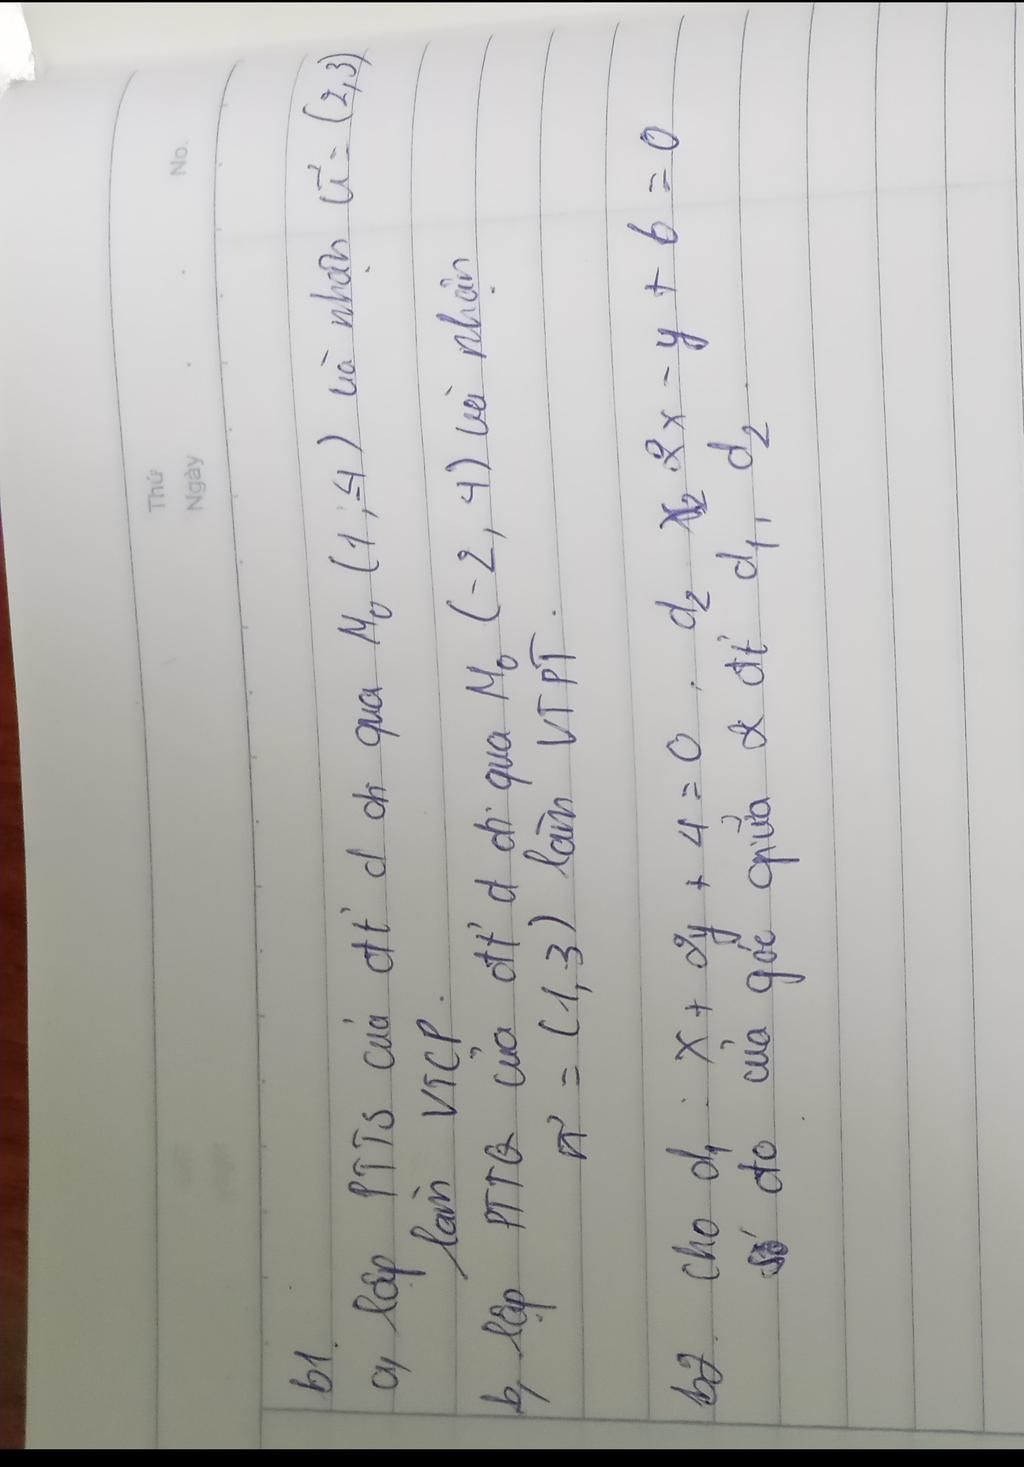 Thứ
Ngày
No.
b1.
a, lập PTTS của đt' d đi qua M₀ (1; -4) và nhận u⃗ = (2,3)
làm VTCP.
b, lập PTTQ của đt' d đi qua M₀ (-2, 4) và nhận
n⃗ = (1,3) làm VTPT.
b2. Cho d₁ : x + 2y + 4 = 0 . d₂ 2x - y + 6 = 0
số đo của góc giữa 2 đt' d₁, d₂